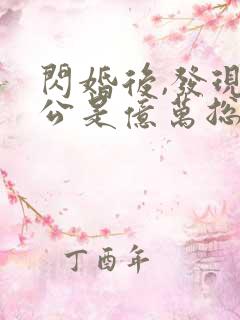 閃婚後,發現
公是億萬總
丁酉年